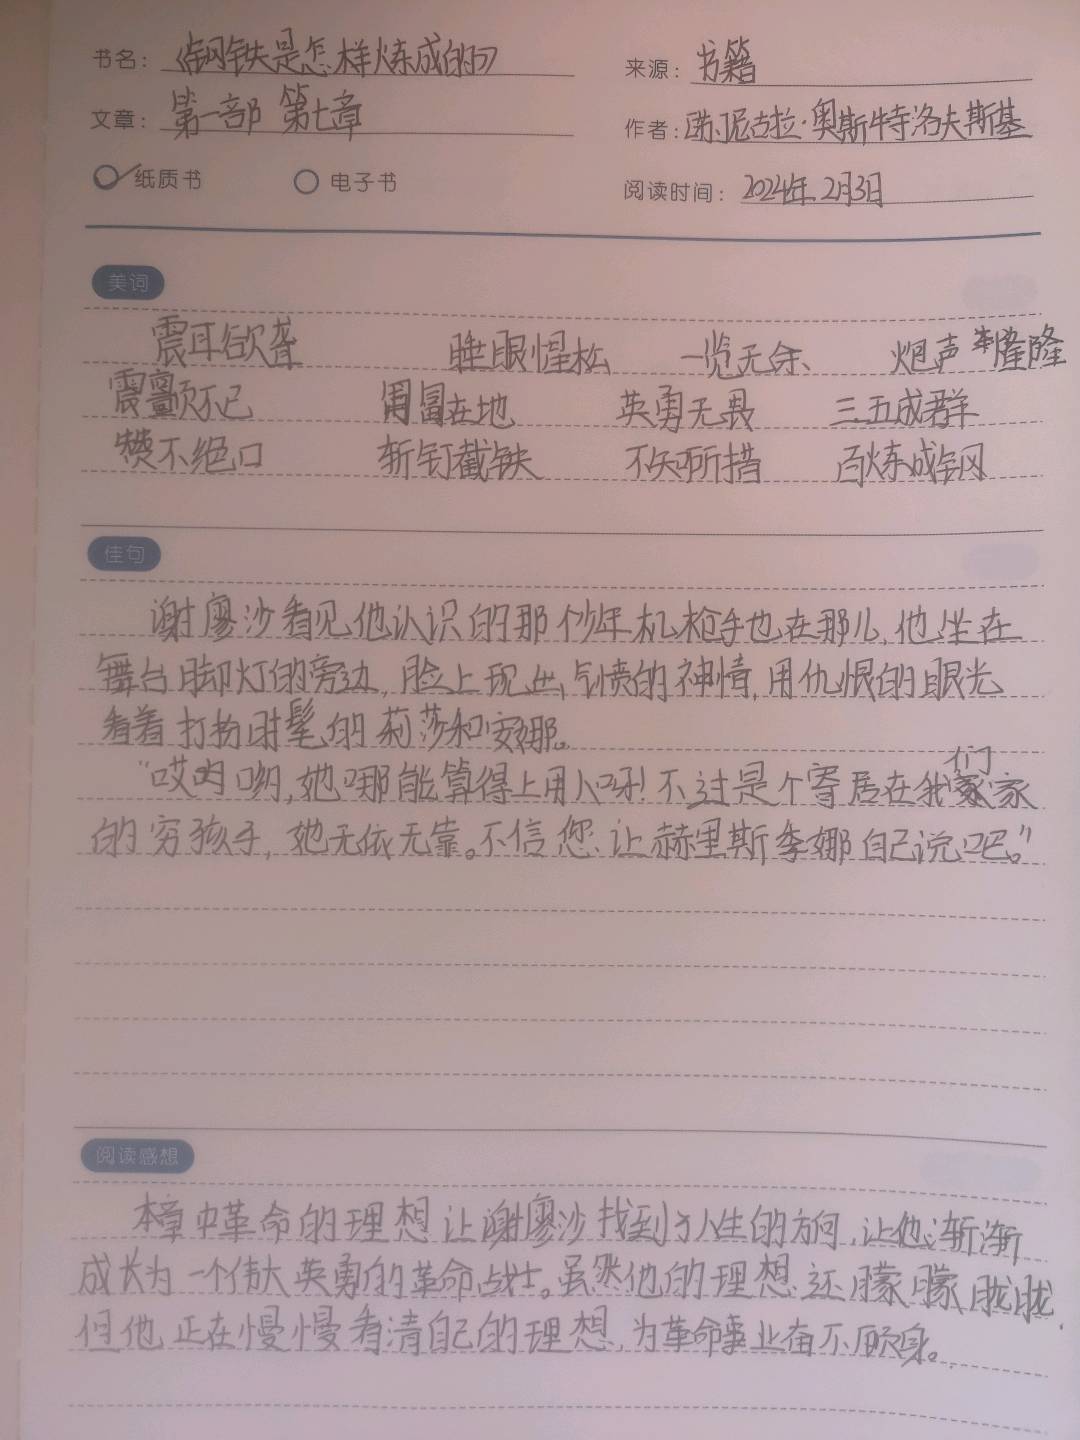 书名：《钢铁是怎样炼成的》
来源：书籍
文章：第一部 第七章
作者：[苏]尼古拉·奥斯特洛夫斯基
纸质书 电子书
阅读时间：2024年2月3日
美词
震耳欲聋 睡眼惺松 一览无余 炮声隆隆
震颤不已 匍匐在地 英勇无畏 三五成群
赞不绝口 斩钉截铁 不知所措 百炼成钢
佳句
谢廖沙看见他认识的那个少年机枪手也在那儿,他坐在
舞台脚灯的旁边,脸上现出气愤的神情,用仇恨的眼光
看着打扮时髦的莉莎和安娜。
“哎哟哟,她哪能算得上用人呀!不过是个寄居在我们家
的穷孩子,她无依无靠。不信您让赫里斯季娜自己说吧。”
阅读感想
本章中革命的理想让谢廖沙找到了人生的方向,让他渐渐
成长为一个伟大英勇的革命战士。虽然他的理想还朦朦胧胧,
但他正在慢慢看清自己的理想,为革命事业奋不顾身。